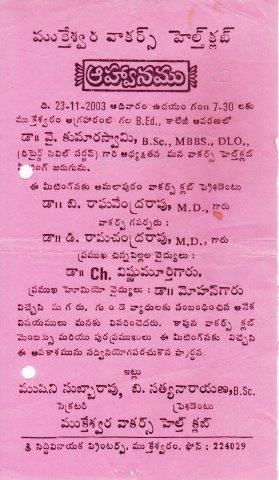 ముక్తేశ్వర వాకర్స్ హెల్త్ క్లబ్
ఆహ్వానము
ది. 23-11-2003 ఆదివారం ఉదయం గం॥ 7-30 లకు
ముక్తేశ్వరం అగ్రహారంలో గల B.Ed., కాలేజీ ఆవరణలో
డా॥ వై. కుమారస్వామి, B.Sc., MBBS., DLO.,
(రిటైర్డ్ సివిల్ సర్జన్) గారి అధ్యక్షతన మన వాకర్స్ హెల్త్‌క్లబ్
జరుగును.
ఈ మీటింగ్‌నకు అమలాపురం వాకర్స్ క్లబ్ ప్రెసిడెంటు
డా॥ బి. రాఘవేంద్రరావు, M.D., గారు
వాకర్స్ గవర్నరు :
డా॥ డి. రామచంద్రరావు, M.D., గారు
ప్రముఖ చిన్నపిల్లల వైద్యులు :
డా॥ Ch. విష్ణుమూర్తిగారు,
ప్రముఖ హోమియో వైద్యులు : డా॥ మోహన్‌గారు
విచ్చేసి షుగరు, గుండె వ్యాధులకు సంబంధించిన అనేక
విషయములు మనకు వివరించెదరు. కావున వాకర్స్ క్లబ్
మెంబర్సు మరియు పురప్రముఖులు ఈ మీటింగ్‌నకు విచ్చేసి
ఈ అవకాశమును సద్వినియోగపరచుకొన ప్రార్థన.
ఇట్లు
ముషిని సుబ్బారావు, బి. సత్యనారాయణ, B.Sc.
సెక్రటరి ప్రెసిడెంటు
ముక్తేశ్వర వాకర్స్ హెల్త్ క్లబ్
శ్రీ సిద్ధివినాయక ప్రింటర్స్, ముక్తేశ్వరం. ఫోన్ : 224029